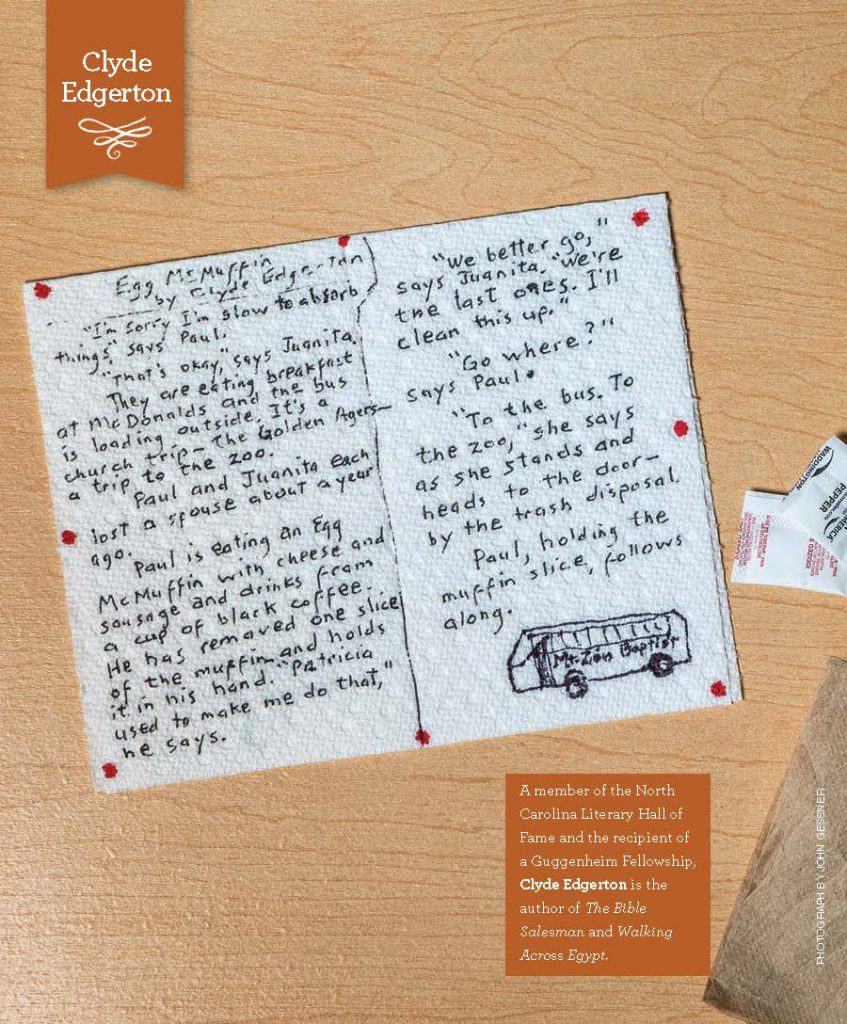 Clyde
Edgerton
Egg McMuffin
by Clyde Edgerton
"I'm sorry I'm slow to absorb
things," says Paul.
"That's okay," says Juanita.
They are eating breakfast
at McDonalds and the bus
is loading outside. It's a
church trip— The Golden Agers—
a trip to the zoo.
Paul and Juanita each
lost a spouse about a year
ago.
Paul is eating an Egg
McMuffin with cheese and
sausage and drinks from
a cup of black coffee.
He has removed one slice
of the muffin and holds
it in his hand. "Patricia
used to make me do that,"
he says.
"We better go,"
says Juanita. "We're
the last ones. I'll
clean this up."
"Go where?"
says Paul.
"To the bus. To
the zoo," she says
as she stands and
heads to the door—
by the trash disposal.
Paul, holding the
muffin slice, follows
along.
Mt. Zion Baptist
WADDINGTON
PEPPER
A member of the North
Carolina Literary Hall of
Fame and the recipient of
a Guggenheim Fellowship,
Clyde Edgerton is the
author of The Bible
Salesman and Walking
Across Egypt.
PHOTOGRAPH BY JOHN GESSNER